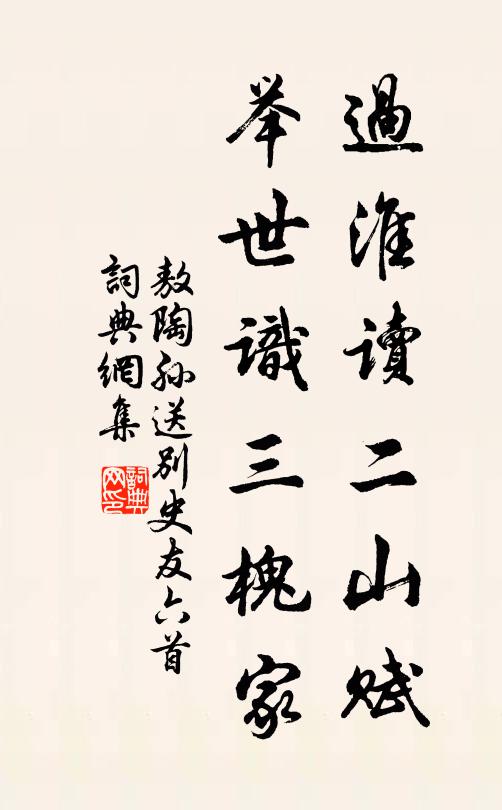 過淮讀二山賦
举世識三槐家
敖陶孙送别史友六首
詞典網集
詞典網印